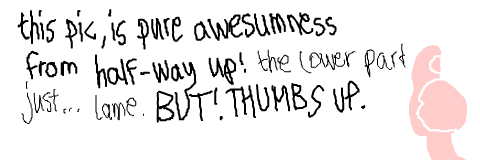 this pic, is pure awesumness
from half-way up! the lower part
just... lame. BUT! THUMBS UP.